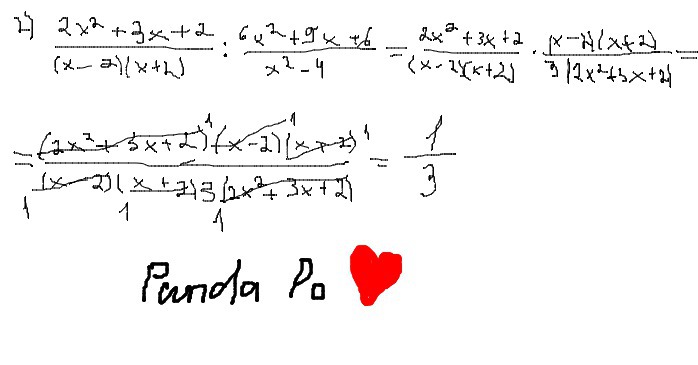 2) (2x² + 3x + 2)/((x - 2)(x + 2)) : (6x² + 9x + 6)/(x² - 4) = (2x² + 3x + 2)/((x - 2)(x + 2)) · ((x - 2)(x + 2))/(3(2x² + 3x + 2)) =
= ((2x² + 3x + 2)¹(x - 2)¹(x + 2)¹)/(₁(x - 2)₁(x + 2)3₁(2x² + 3x + 2)) = 1/3
Panda Po